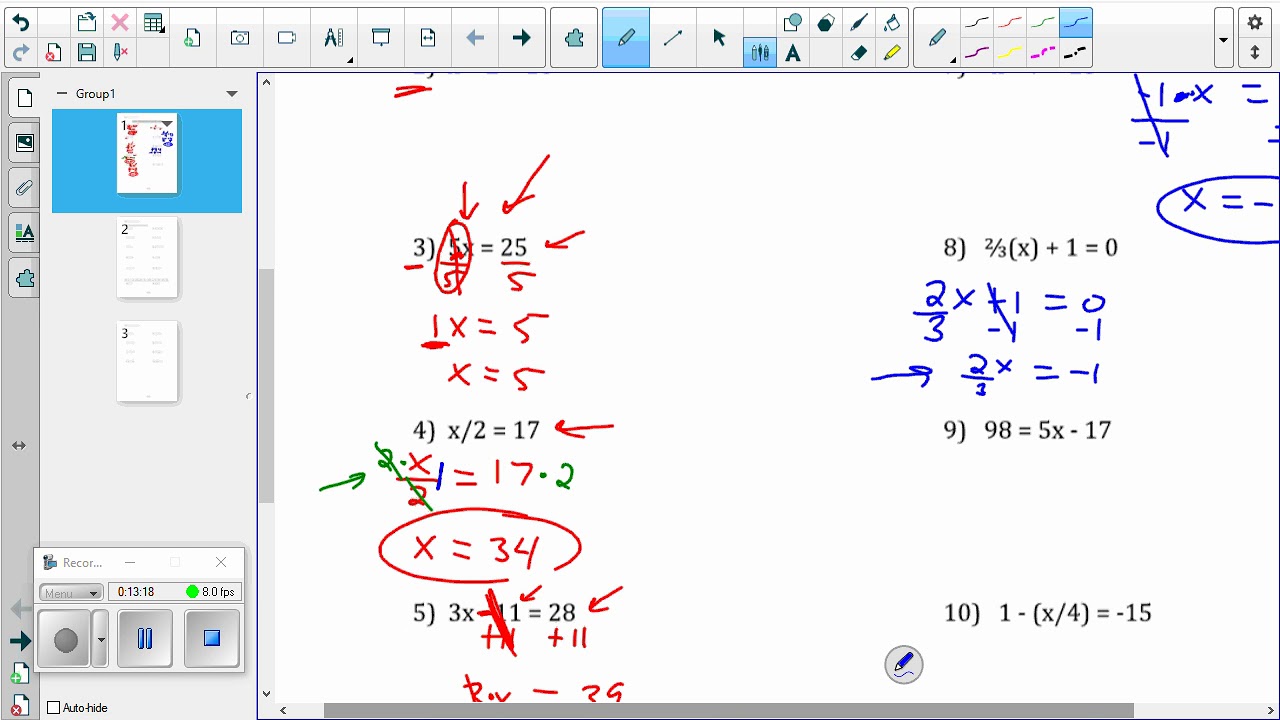 Group1
1
2
3
-1·x =
-1
x = -
3) 5x = 25
5 5
1x = 5
x = 5
8) ⅔(x) + 1 = 0
2/3 x +1 = 0
-1 -1
2/3 x = -1
4) x/2 = 17
2·x/2 = 17·2
x = 34
9) 98 = 5x - 17
5) 3x - 11 = 28
+11 +11
10) 1 - (x/4) = -15
Recor...
Menu
0:13:18
8.0 fps
Auto-hide